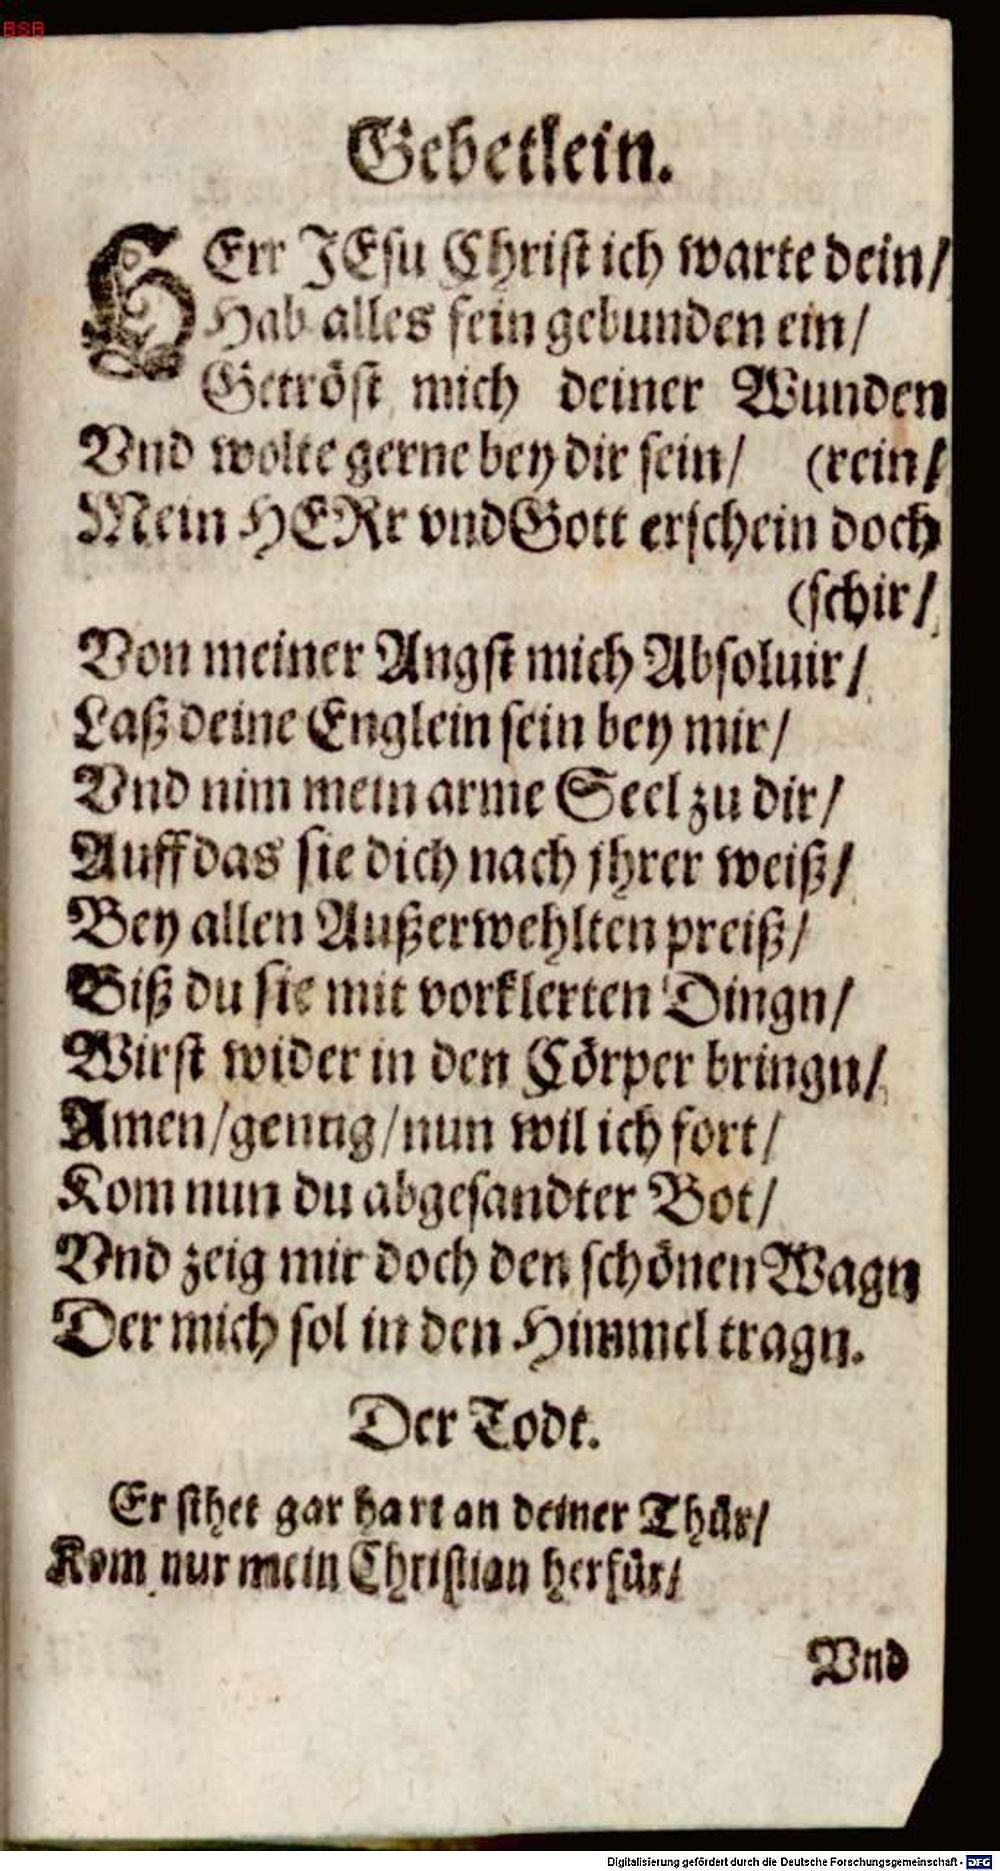 BSB
Gebetlein.
HErr JEsu Christ ich warte dein/
Hab alles fein gebunden ein/
Getröst mich deiner Wunden
Vnd wolte gerne bey dir sein/ (rein/
Mein HERr vnd Gott erschein doch
(schir/
Von meiner Angst mich Absoluir/
Laß deine Englein sein bey mir/
Vnd nim mein arme Seel zu dir/
Auff das sie dich nach jhrer weiß/
Bey allen Außerwehlten preiß/
Biß du sie mit vorklerten Dingn/
Wirst wider in den Cörper bringn/
Amen/genug/nun wil ich fort/
Kom nun du abgesandter Bot/
Vnd zeig mir doch den schönen Wagn
Der mich sol in den Himmel tragn.
Der Todt.
Er sthet gar hart an deiner Thür/
Kom nur mein Christian herfür/
Vnd
Digitalisierung gefördert durch die Deutsche Forschungsgemeinschaft - DFG